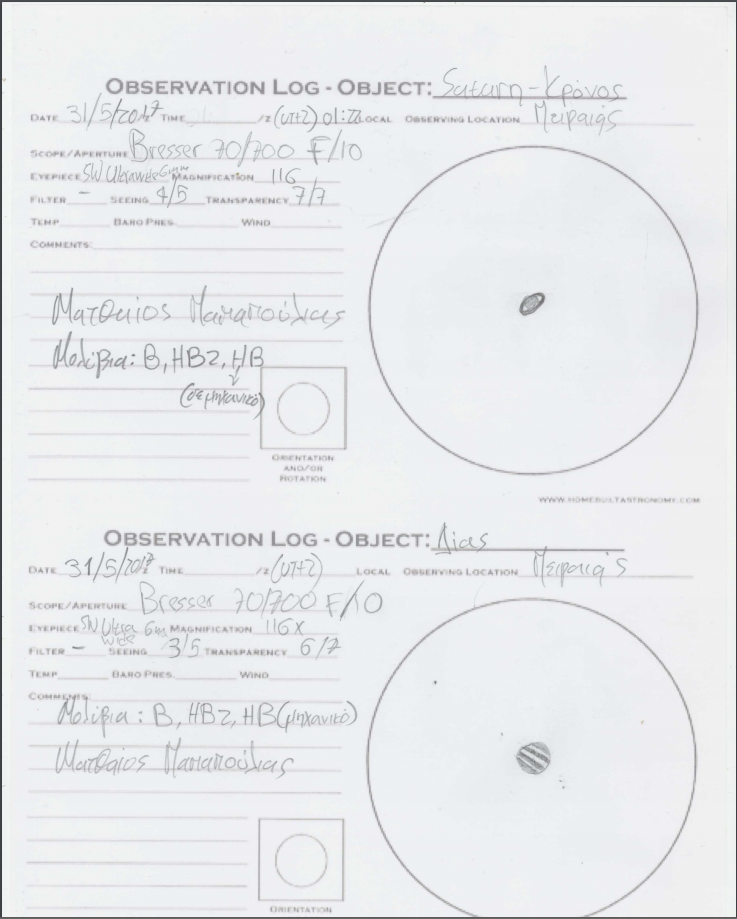 OBSERVATION LOG - OBJECT: Saturn - Κρόνος
DATE 31/5/2017 TIME /Z (UT+2) 01:22 LOCAL OBSERVING LOCATION Πειραιάς
SCOPE/APERTURE Bresser 70/700 F/10
EYEPIECE SW Ultrawide 6mm MAGNIFICATION 116
FILTER - SEEING 4/5 TRANSPARENCY 7/7
TEMP BARO PRES. WIND
COMMENTS:
Ματθαίος
Μολύβια: B, HB2, HB
(μηχανικό)
ORIENTATION
AND/OR
ROTATION
WWW.HOMEBUILTASTRONOMY.COM
OBSERVATION LOG - OBJECT: Δίας
DATE 31/5/2017 TIME /Z (UT+2) LOCAL OBSERVING LOCATION Πειραιάς
SCOPE/APERTURE Bresser 70/700 F/10
EYEPIECE SW Ultra Wide 6mm MAGNIFICATION 116x
FILTER - SEEING 3/5 TRANSPARENCY 6/7
TEMP BARO PRES. WIND
COMMENTS:
Μολύβια: B, HB2, HB (μηχανικό)
Ματθαίος
ORIENTATION